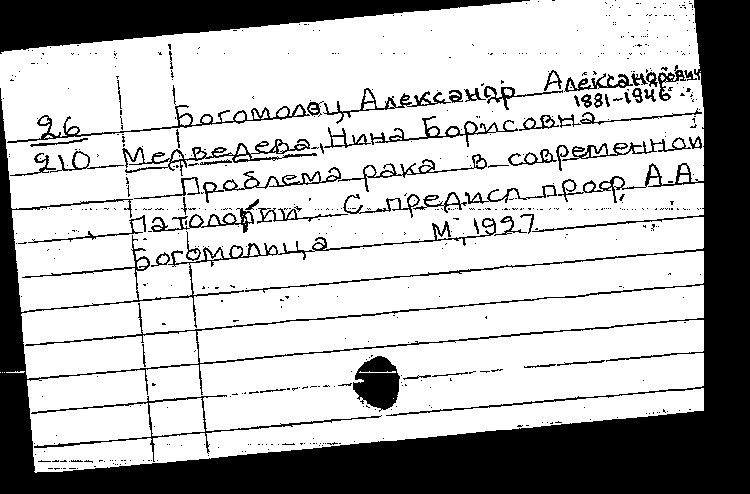 Богомолец, Александр Александрович
1881-1946
26
210 Медведева, Нина Борисовна
Проблема рака в современной
патологии. С предисл проф. А.А.
Богомольца М, 1927